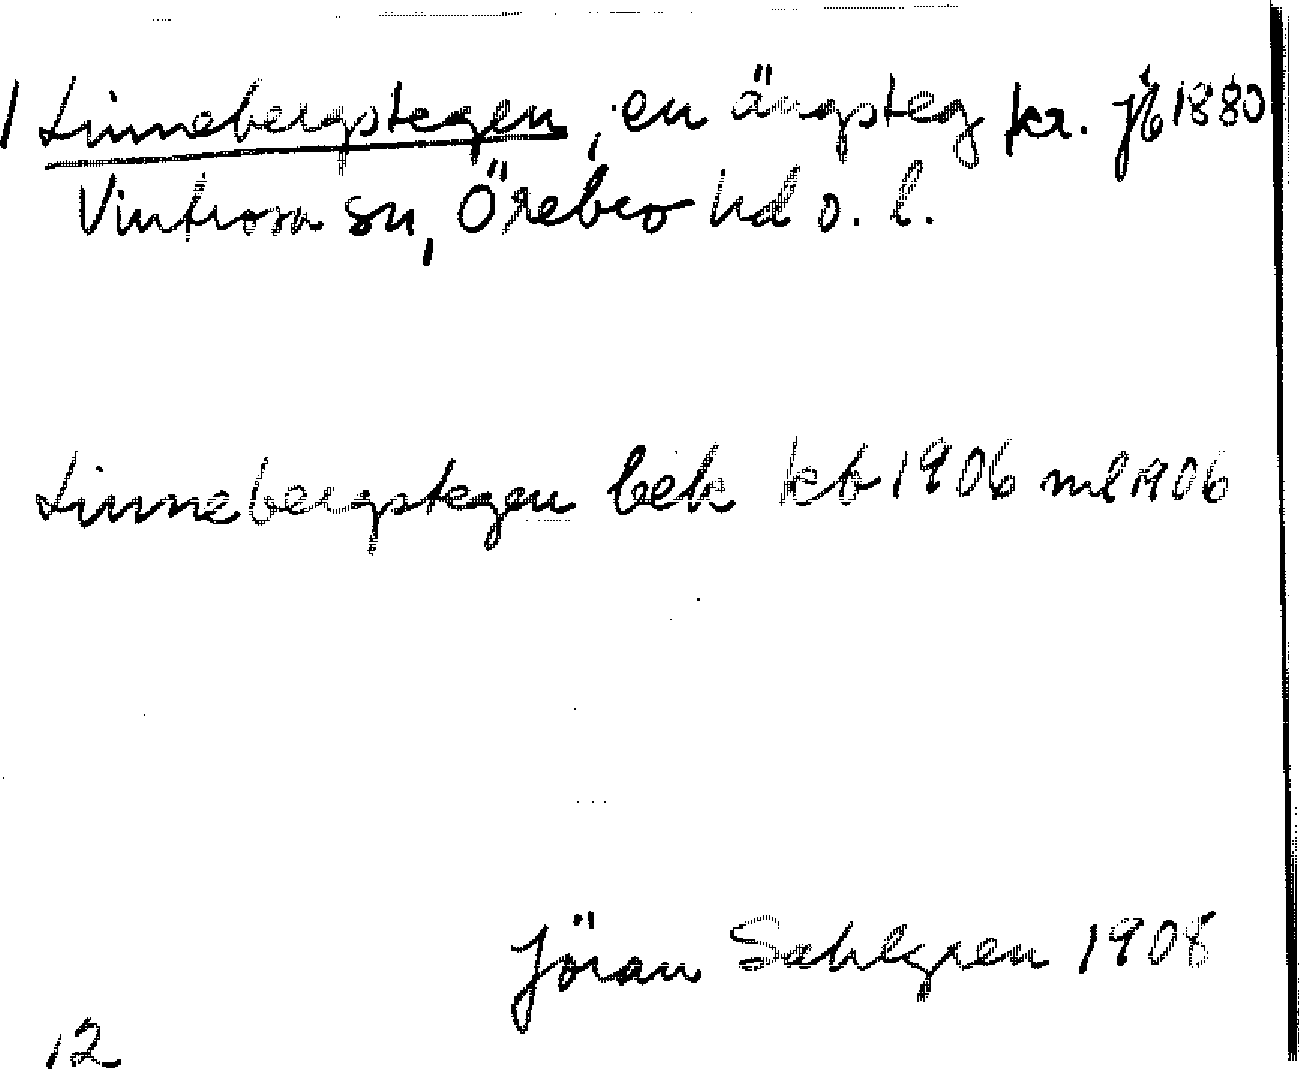 1 Linnebergstegen, en ängsteg kr. jb 1880
Vintrosa sn, Örebro hd o. l.
Linnebergstegen bek kb 1906 ml 1906
Jöran Sahlgren 1908
12